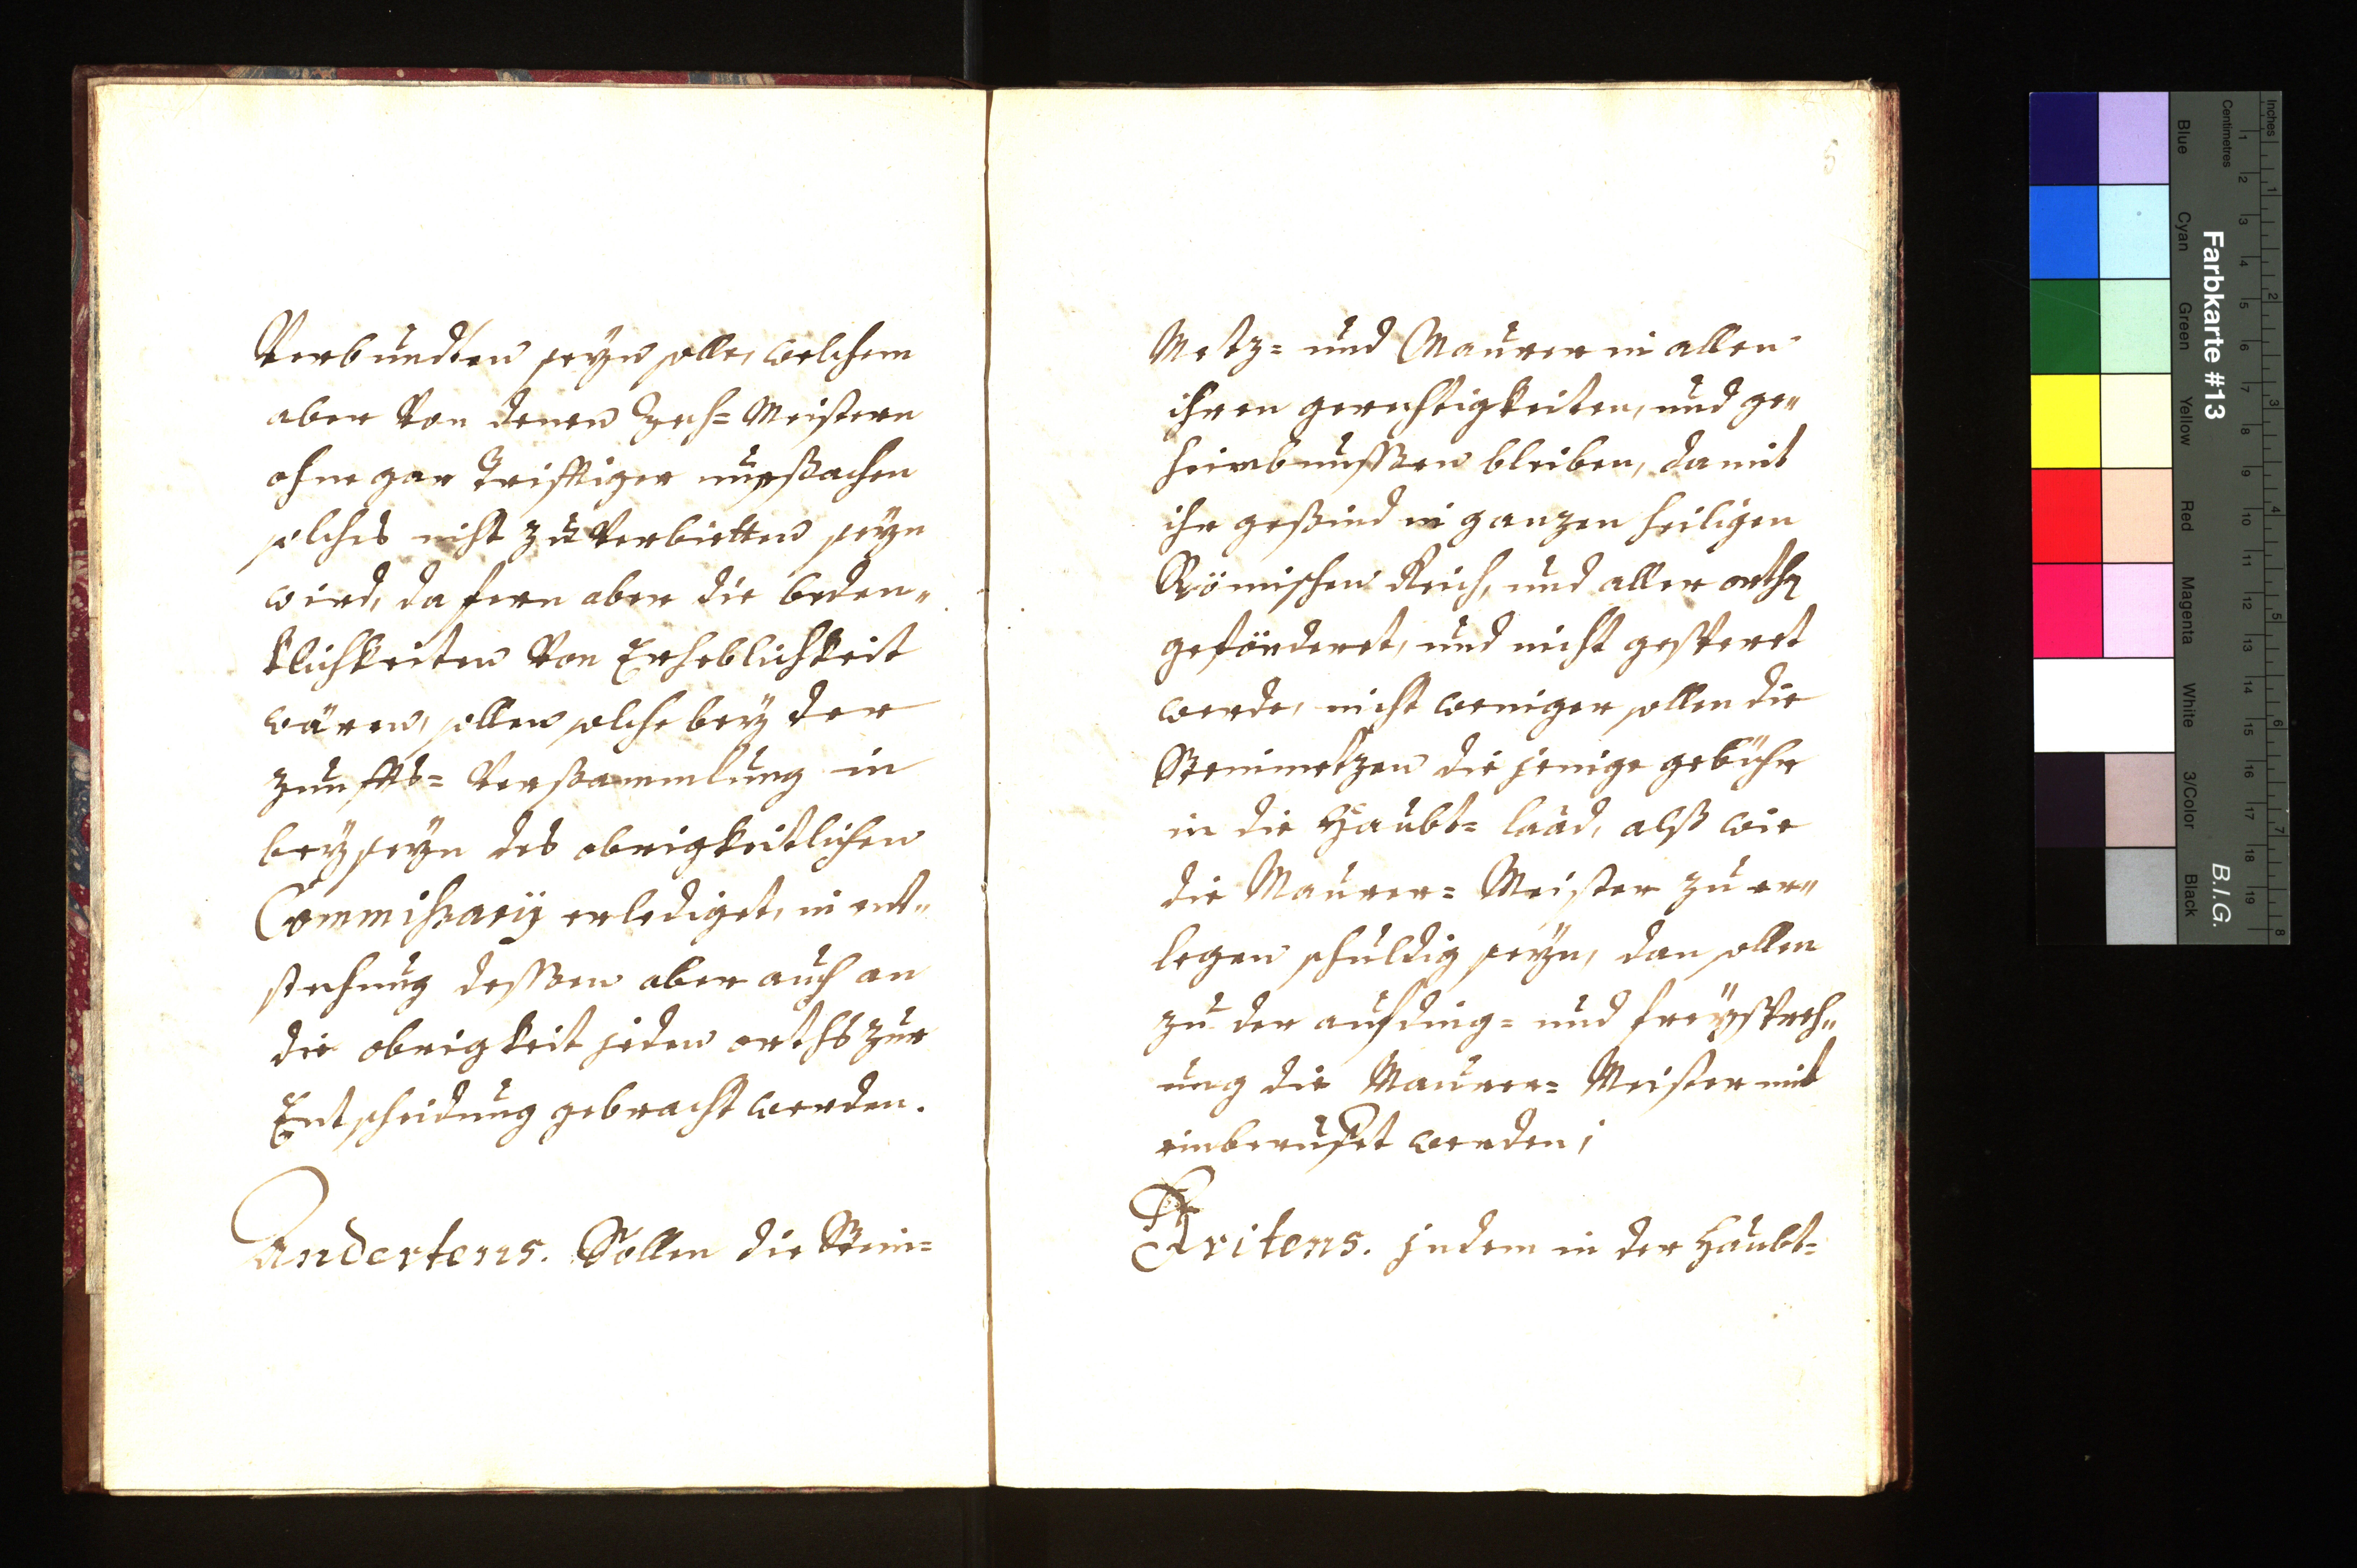 Verbundten seyn solle, welchem
aber von denen Zech= Meistern
ohne gar Trifftiger uhrßachen
solches nicht zu Verbietten seyn
wird, da fern aber die beden„
klichkeiten Von Erheblichkeit
wären, sollen solche bey der
Zunffts= Verßammlung in
beyseyn des obrigkeitlichen
Commißarÿ erlediget, in ent„
stehung deßen aber auch an
die obrigkeit jeden orths zur
Entscheidung gebracht werden.
Andertens. Sollen die Stein=
5
Metz= und Maurer in allen
ihren gerechtigkeiten, und ge„
heimbnußen bleiben, damit
ihr geßind in ganzen heiligen
Römischen Reich, und aller orth
geförderet, und nicht gesteret
werde, nicht weniger sollen die
Steinmetzen die jenige gebühr
in die Haubt= laad, alß wie
die Maurer= Meister zu er„
legen schuldig seyn, dan sollen
zu der aufding= und freÿsprech„
ung die Maurer= Meister mit
einberuffet werden;
Dritens. jndem in der Haubt=
Inches
Centimetres
1 2 3 4 5 6 7 8
1 2 3 4 5 6 7 8 9 10 11 12 13 14 15 16 17 18 19
Farbkarte #13
B.I.G.
Blue Cyan Green Yellow Red Magenta White 3/Color Black